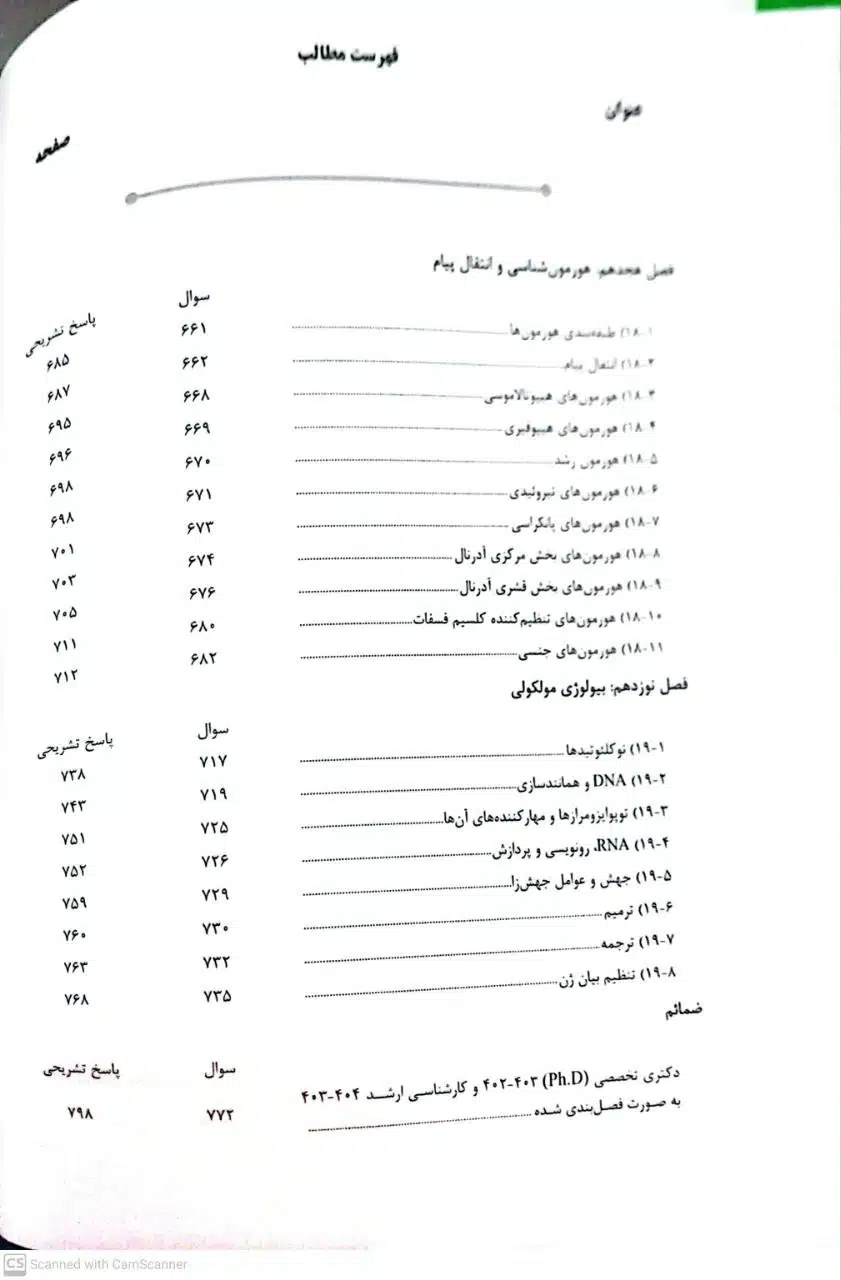 فهرست مطالب
عنوان
صفحه
فصل هجدهم: هورمون‌شناسی و انتقال پیام
سوال پاسخ تشریحی
۱۸-۱) طبقه‌بندی هورمون‌ها ۶۶۱ ۶۸۵
۱۸-۲) انتقال پیام ۶۶۲ ۶۸۷
۱۸-۳) هورمون‌های هیپوتالاموسی ۶۶۸ ۶۹۵
۱۸-۴) هورمون‌های هیپوفیزی ۶۶۹ ۶۹۶
۱۸-۵) هورمون رشد ۶۷۰ ۶۹۸
۱۸-۶) هورمون‌های تیروئیدی ۶۷۱ ۶۹۸
۱۸-۷) هورمون‌های پانکراسی ۶۷۳ ۷۰۱
۱۸-۸) هورمون‌های بخش مرکزی آدرنال ۶۷۴ ۷۰۳
۱۸-۹) هورمون‌های بخش قشری آدرنال ۶۷۶ ۷۰۵
۱۸-۱۰) هورمون‌های تنظیم‌کننده کلسیم فسفات ۶۸۰ ۷۱۱
۱۸-۱۱) هورمون‌های جنسی ۶۸۲ ۷۱۲
فصل نوزدهم: بیولوژی مولکولی
سوال پاسخ تشریحی
۱۹-۱) نوکلئوتیدها ۷۱۷ ۷۳۸
۱۹-۲) DNA و همانندسازی ۷۱۹ ۷۴۳
۱۹-۳) توپوایزومرازها و مهارکننده‌های آن‌ها ۷۲۵ ۷۵۱
۱۹-۴) RNA، رونویسی و پردازش ۷۲۶ ۷۵۲
۱۹-۵) جهش و عوامل جهش‌زا ۷۲۹ ۷۵۹
۱۹-۶) ترمیم ۷۳۰ ۷۶۰
۱۹-۷) ترجمه ۷۳۲ ۷۶۳
۱۹-۸) تنظیم بیان ژن ۷۳۵ ۷۶۸
ضمائم
سوال پاسخ تشریحی
دکتری تخصصی (Ph.D) ۴۰۳-۴۰۲ و کارشناسی ارشد ۴۰۴-۴۰۳
به صورت فصل‌بندی شده ۷۷۲ ۷۹۸
CS Scanned with CamScanner